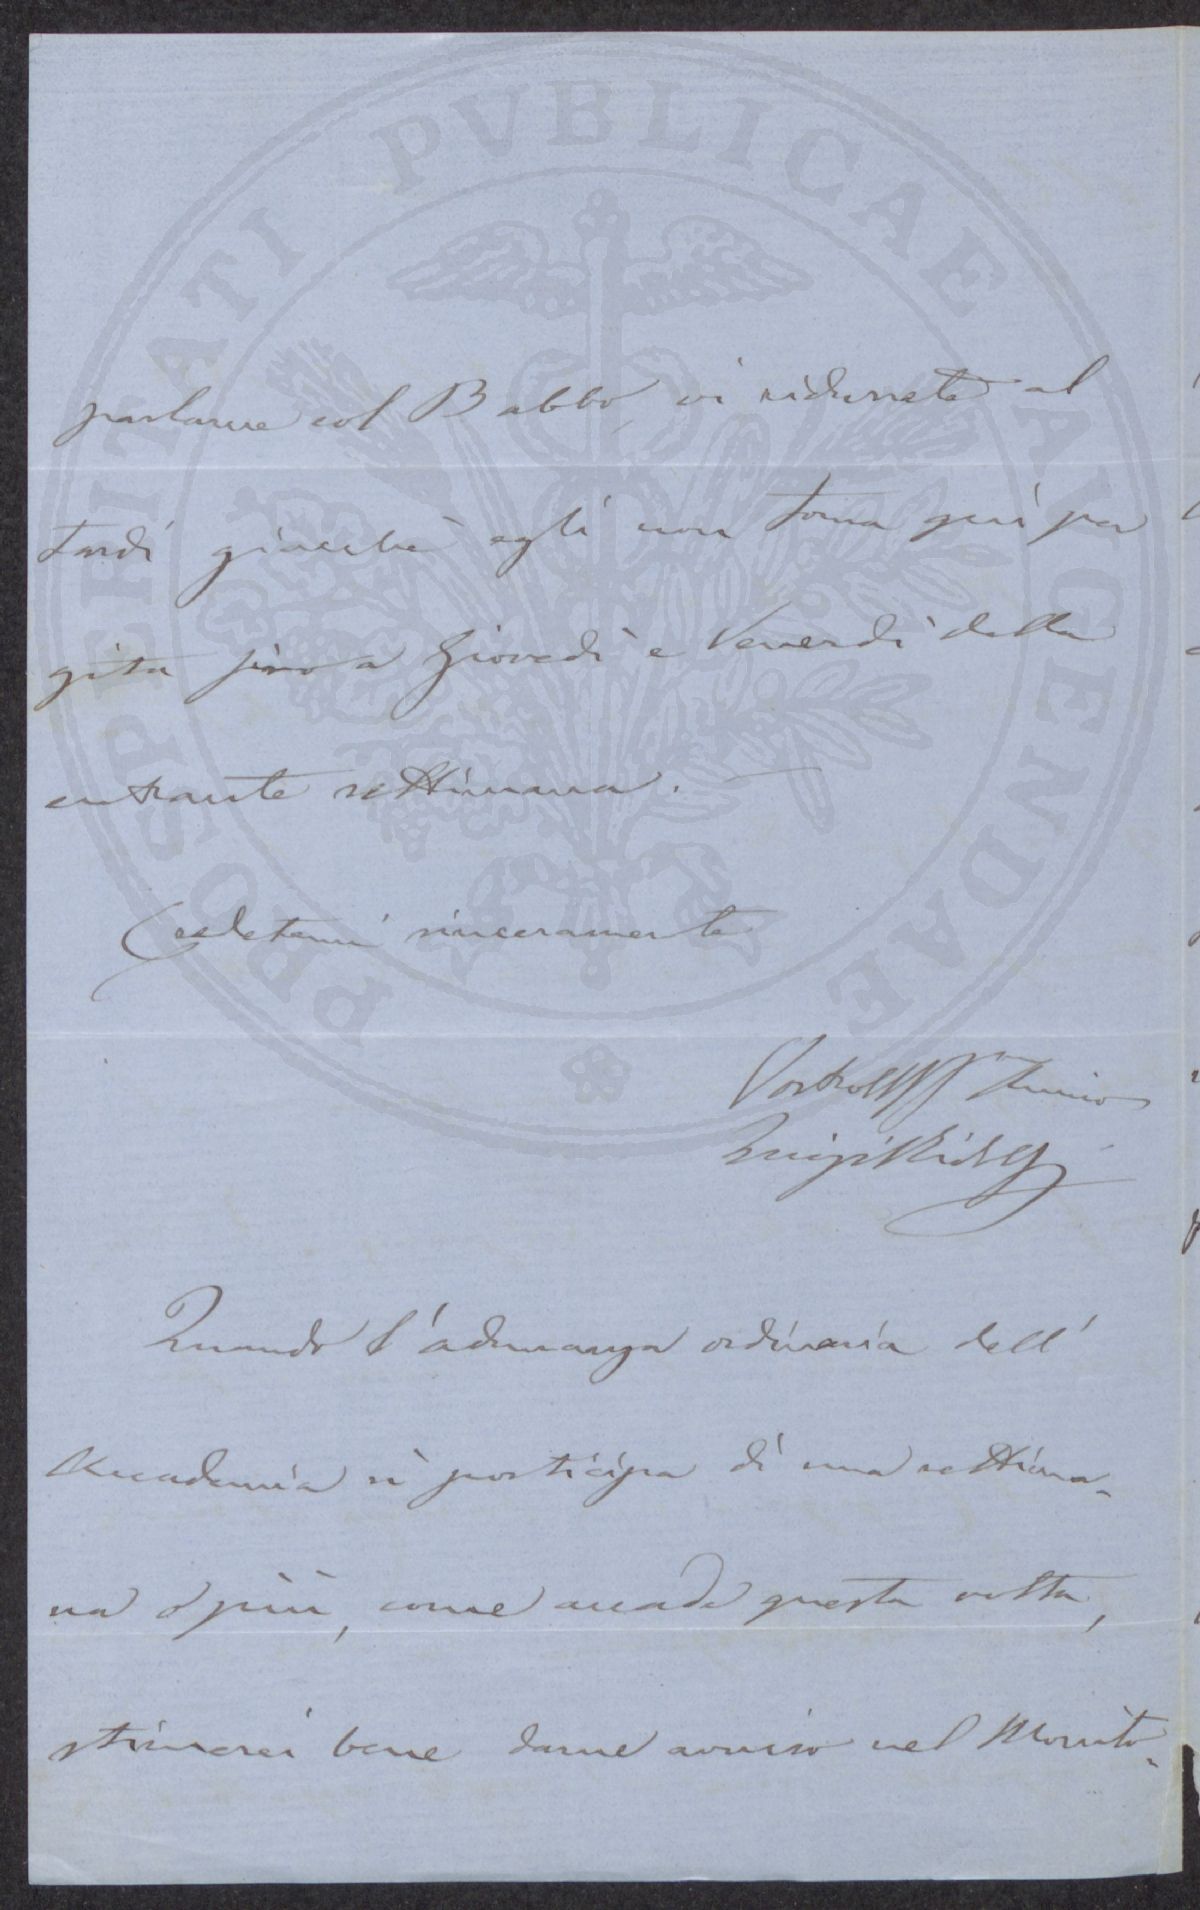 PROSPERITATI PVBLICAE AVGENDAE
parlarne col Babbo, vi ridurrete al
tardi giacchè egli non torna quì per
gita sino a Giovedì e Venerdì della
entrante settimana.
Credetemi sinceramente
Vostro Amico
Luigi Ridolfi
Quando l'adunanza ordinaria dell'
Accademia si posticipa di una settima-
na o più, come accade questa volta,
stimerei bene darne avviso nel Monito-